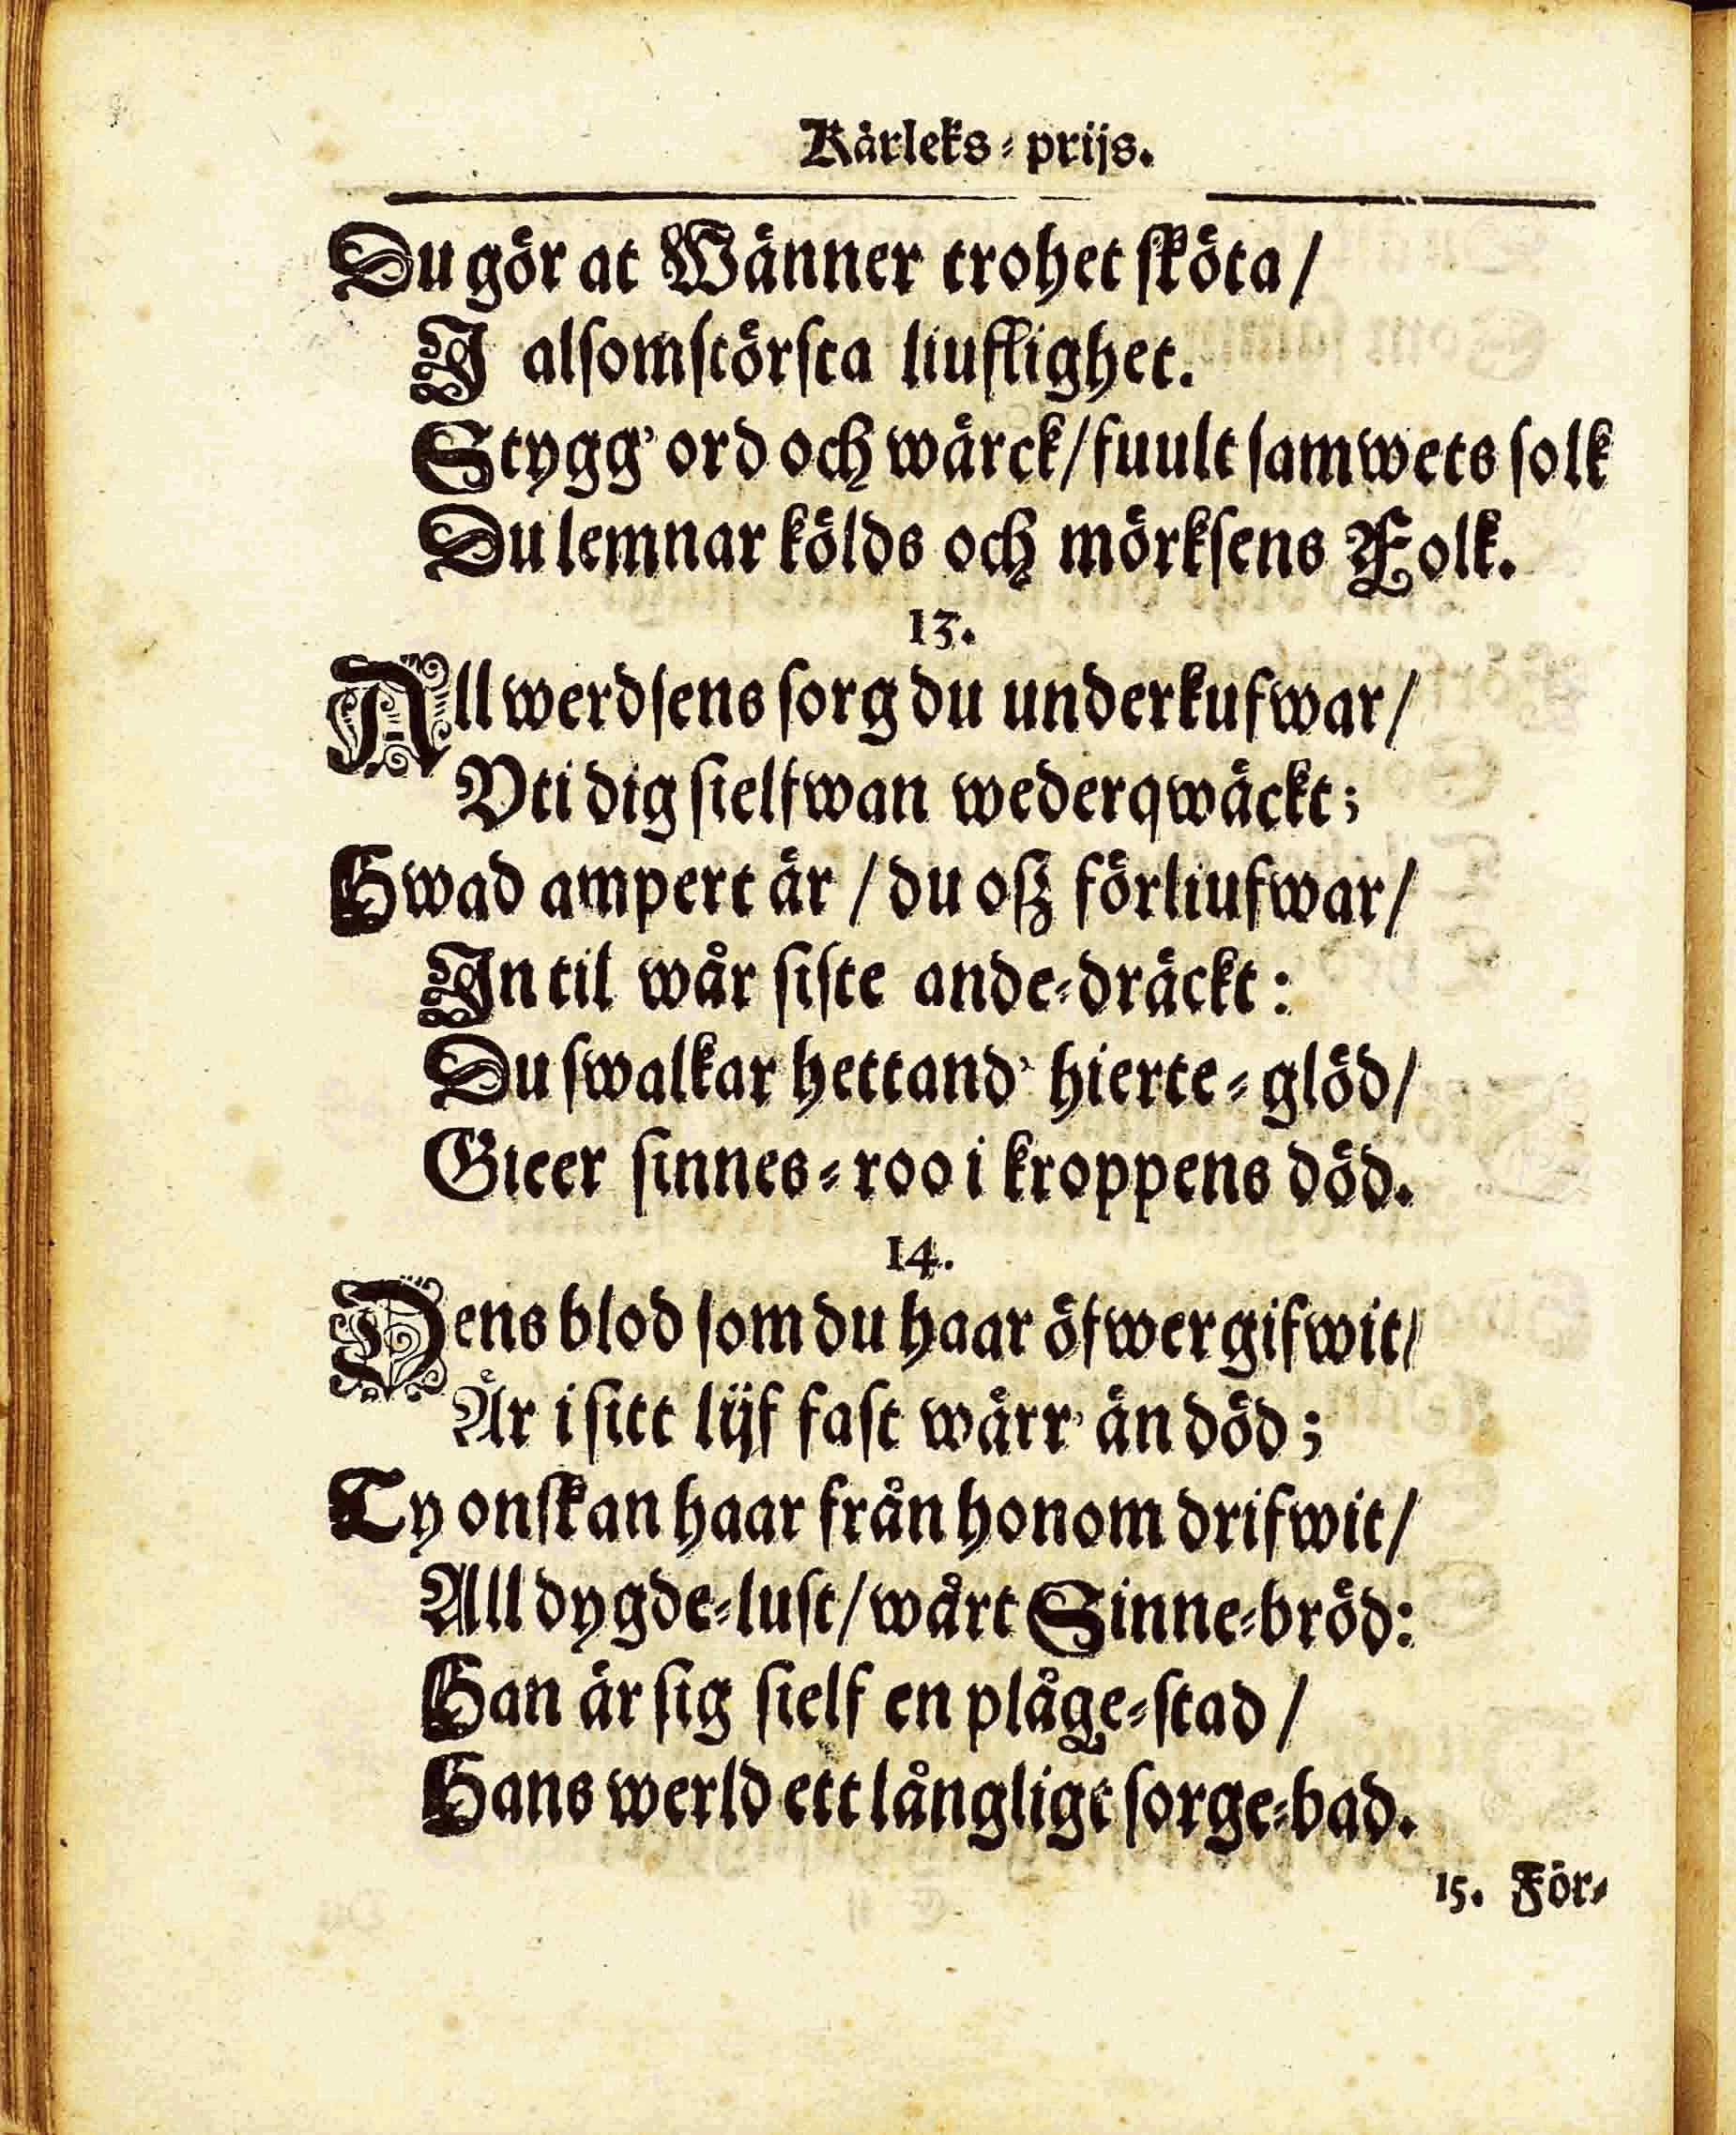 Kärleks-prijs.
Du gör at Wänner trohet sköta/
I alsomstörsta liuflighet.
Stygg' ord och wärck/fuult samwets solk
Du lemnar kölds och mörksens Folk.
13.
All werdsens sorg du underkufwar/
Vti dig sielfwan wederqwäckt;
Hwad ampert är / du oß förliufwar/
In til wår siste ande-dräckt:
Du swalkar hettand' hierte-glöd/
Gieer sinnes-roo i kroppens död.
14.
Dens blod som du haar öfwergifwit/
Är i sitt lijf fast wärr' än död;
Ty onskan haar från honom drifwit/
All dygde-lust/wårt Sinne-bröd:
Han är sig sielf en plåge-stad/
Hans werld ett långligt sorge-bad.
15. För-